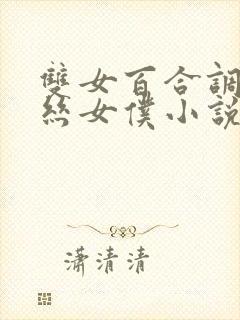 雙女百合調
絲女僕小說
瀟清清